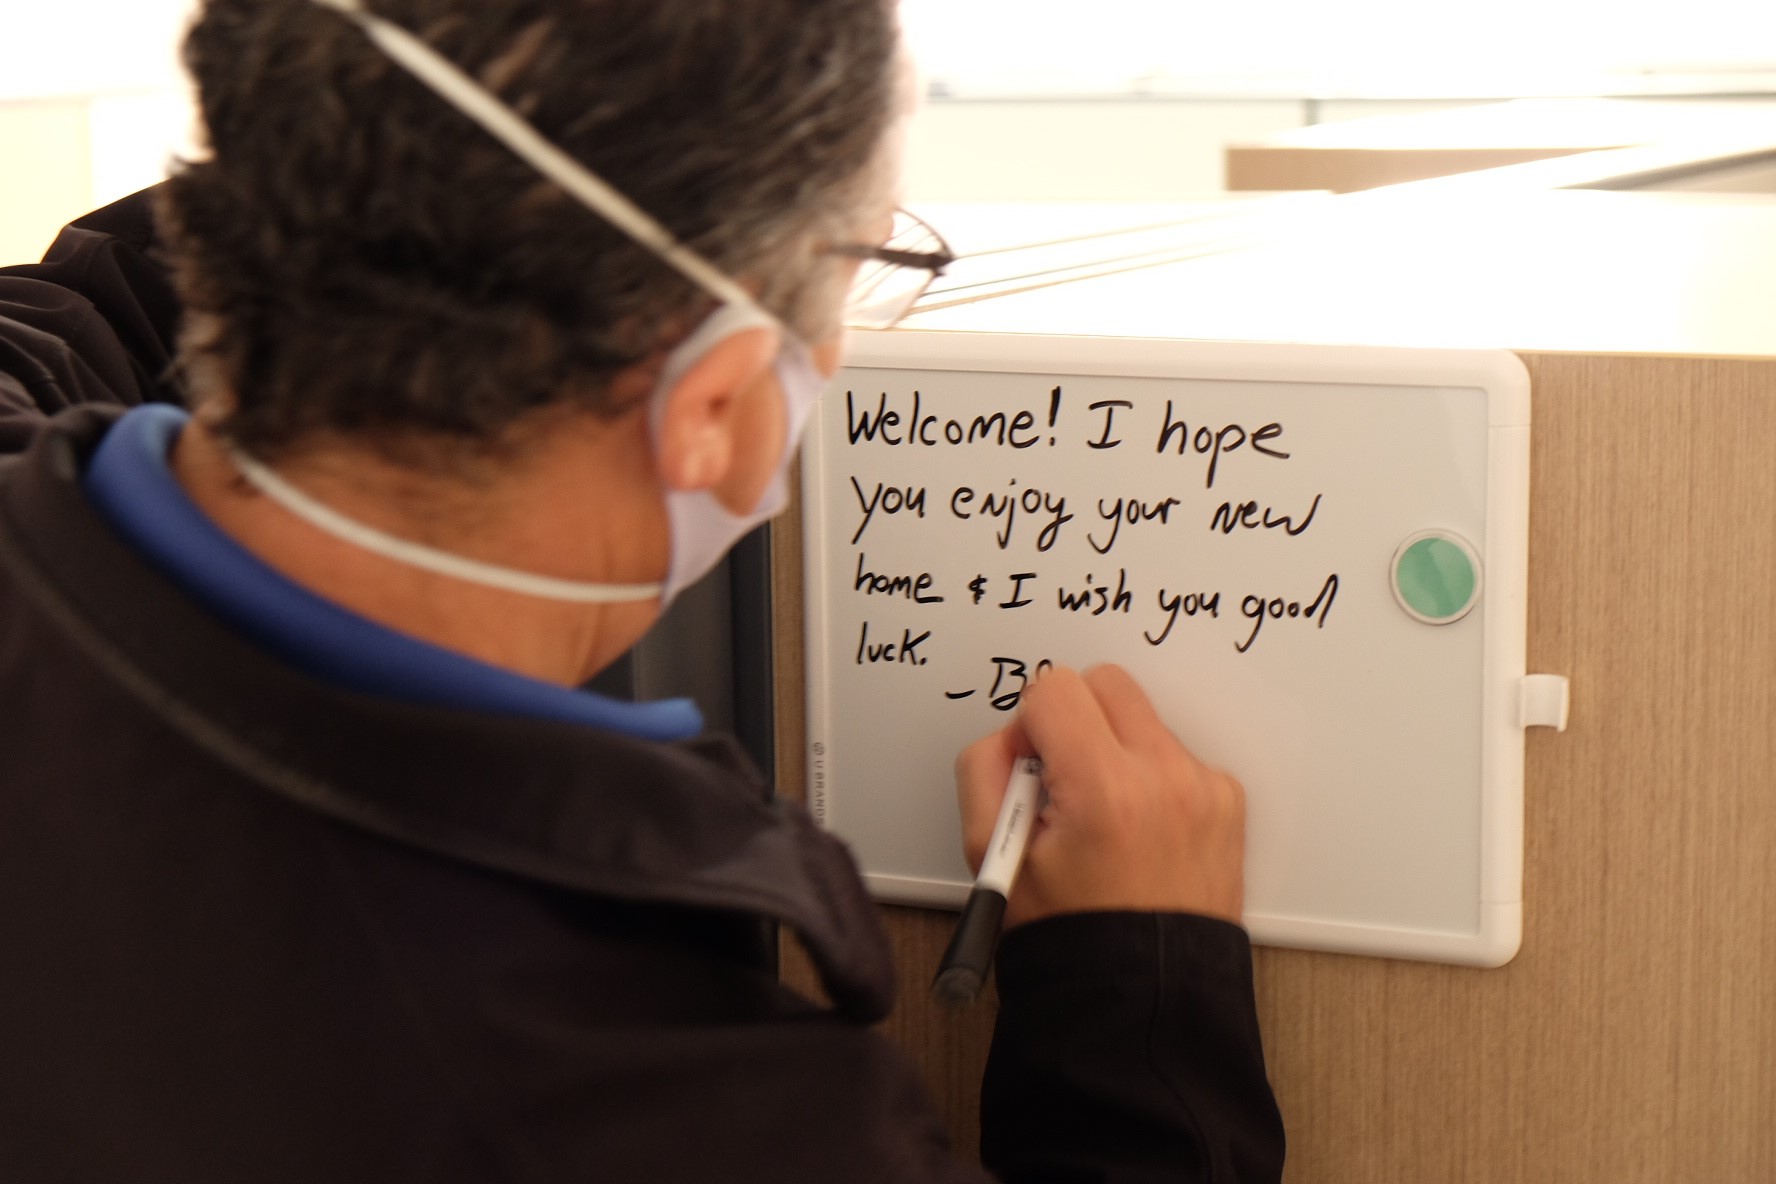 Welcome! I hope
you enjoy your new
home & I wish you good
luck.
U BRANDS